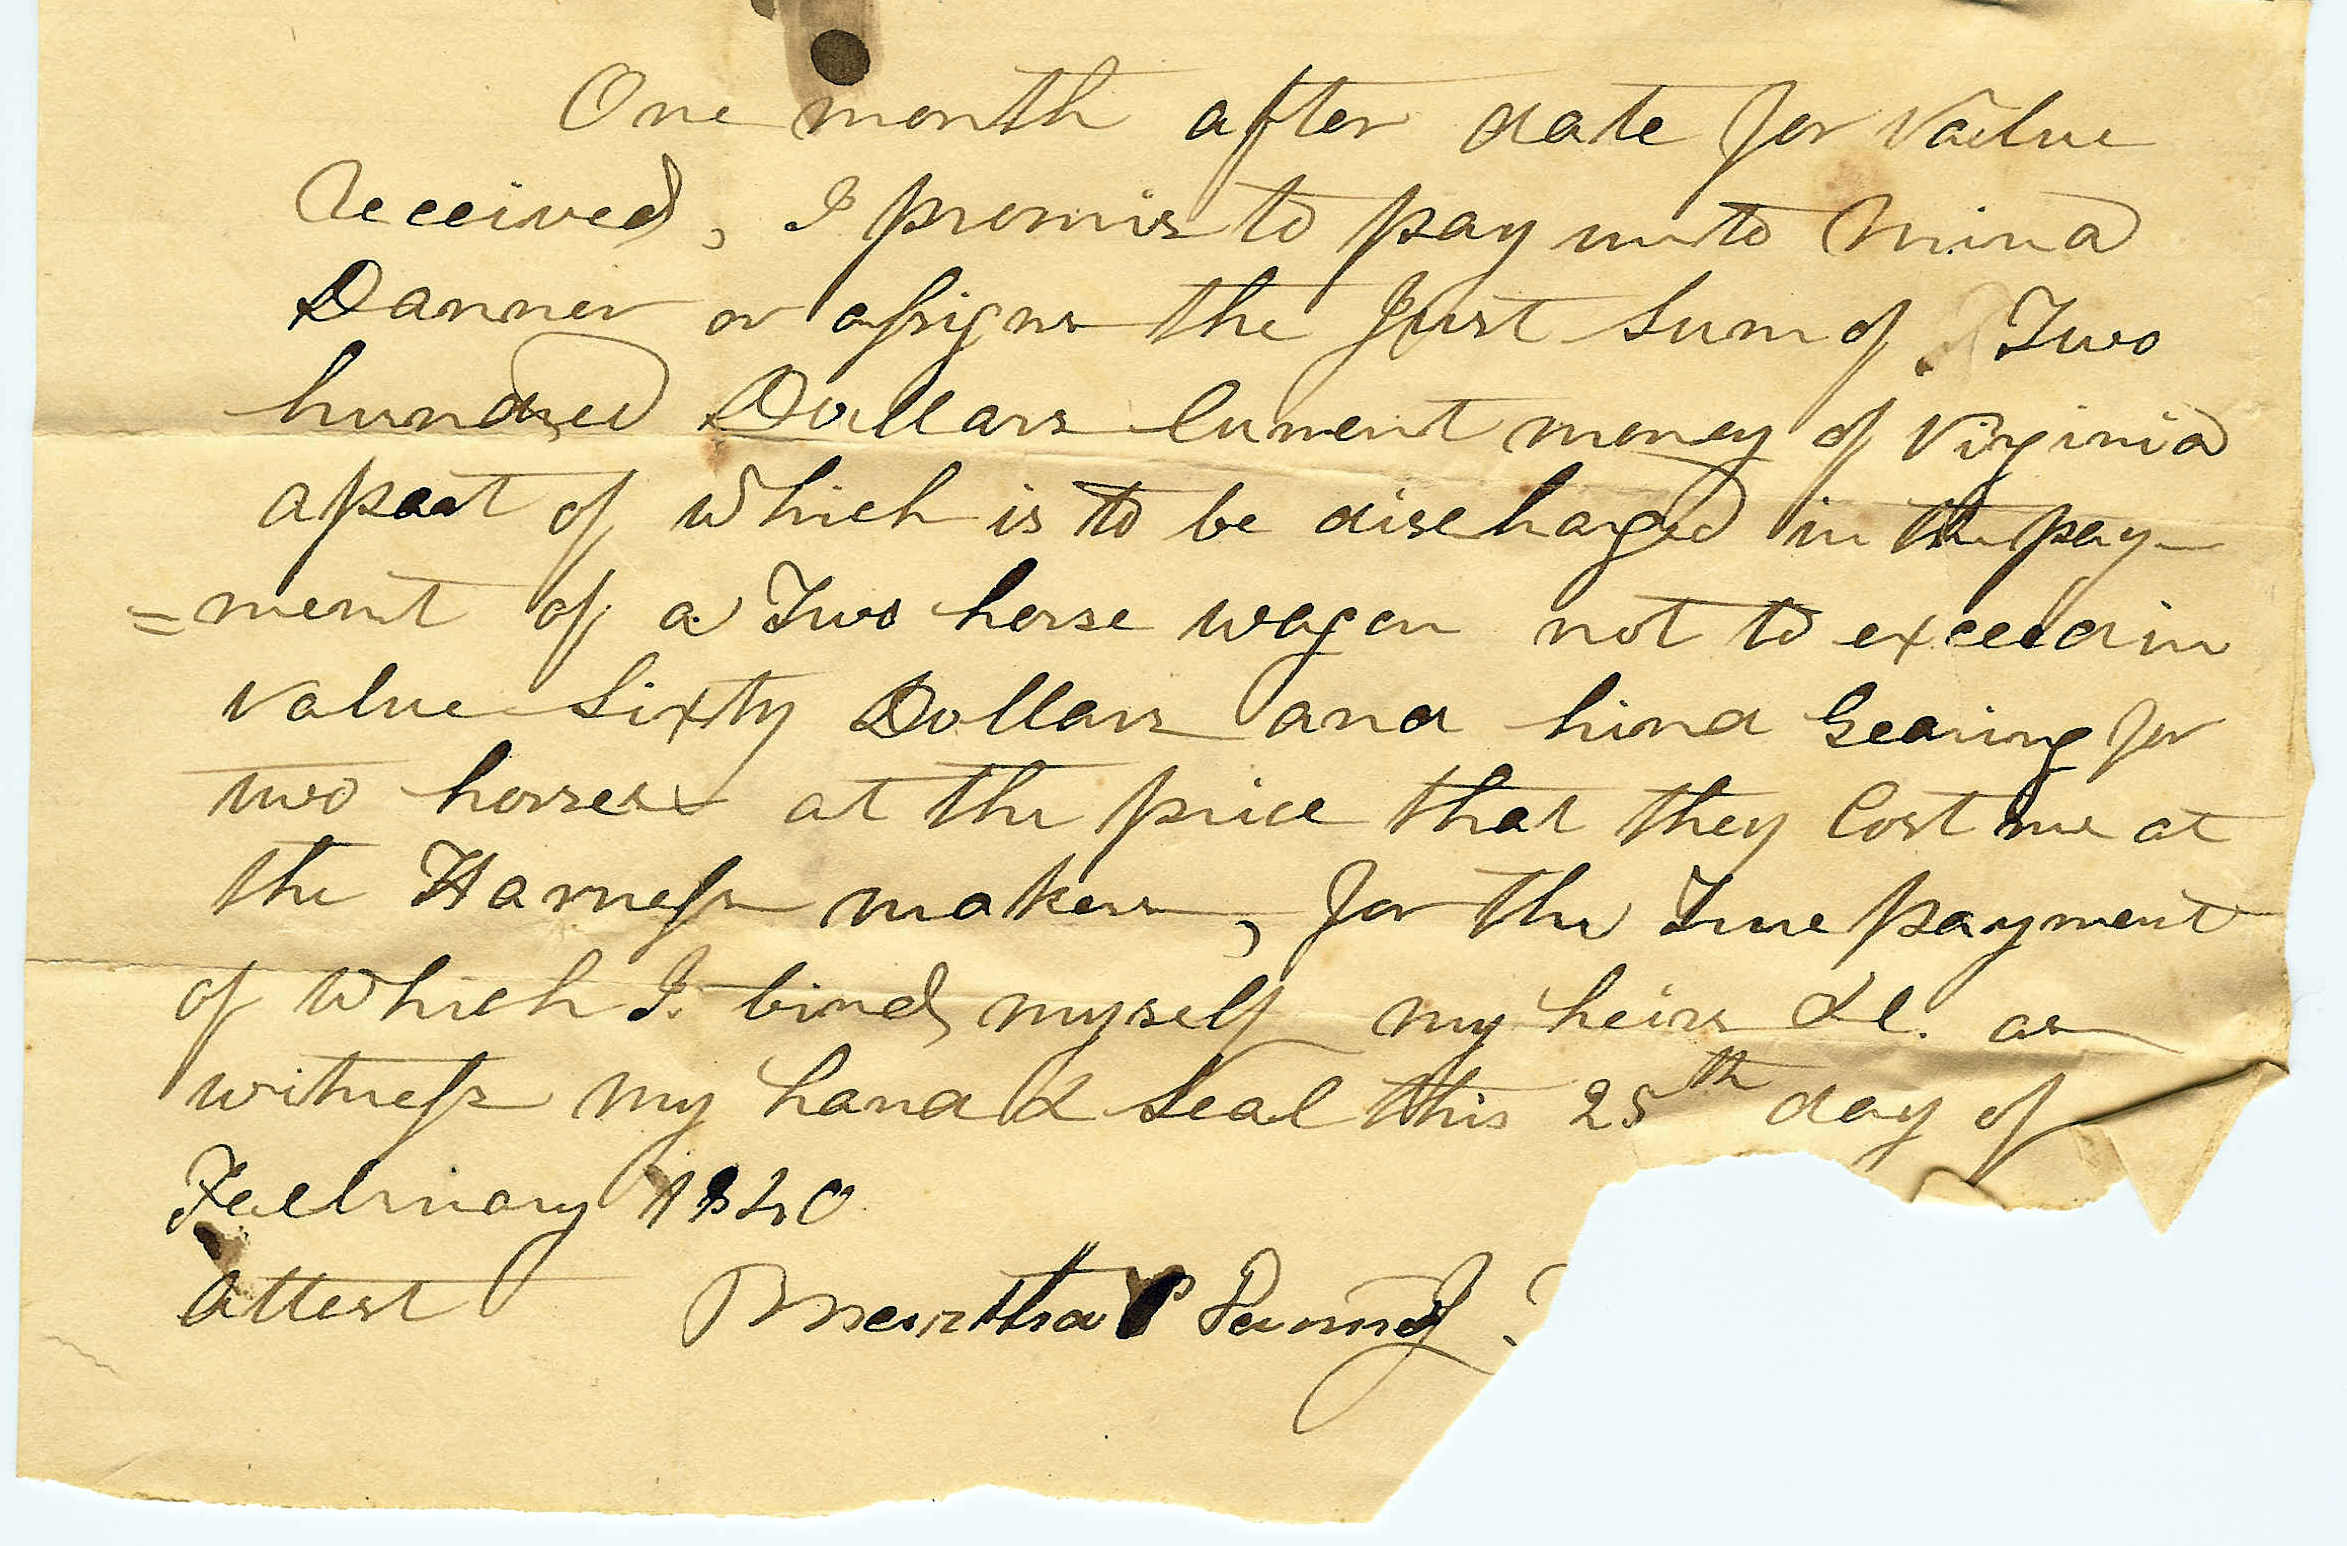 One month after date for value
received, I promis to pay unto Mina
Danner or assigns the just sum of Two
hundred Dollars Current money of Virginia
a part of which is to be discharged in the pay-
=ment of a Two horse wagon not to exceed in
value Sixty Dollars and hind Gearing for
two horses at the price that they Cost me at
the Harness makers, for the True payment
of which I bind myself my heirs &c. as
witness my hand & Seal this 25th day of
February 1840
attest